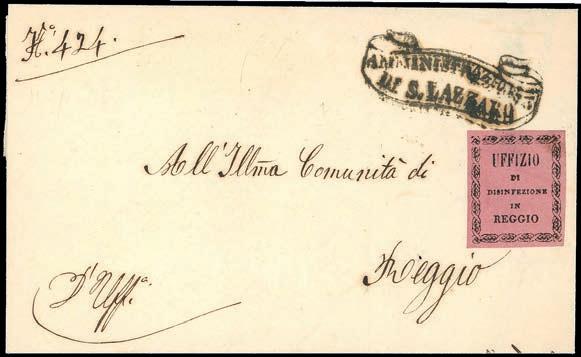 N.º 424.
AMMINISTRAZIONE
DI S. LAZZARO
All' Illm̃a Comunità di
UFFIZIO
DI
DISINFEZIONE
IN
REGGIO
Reggio
D'Uff.ª